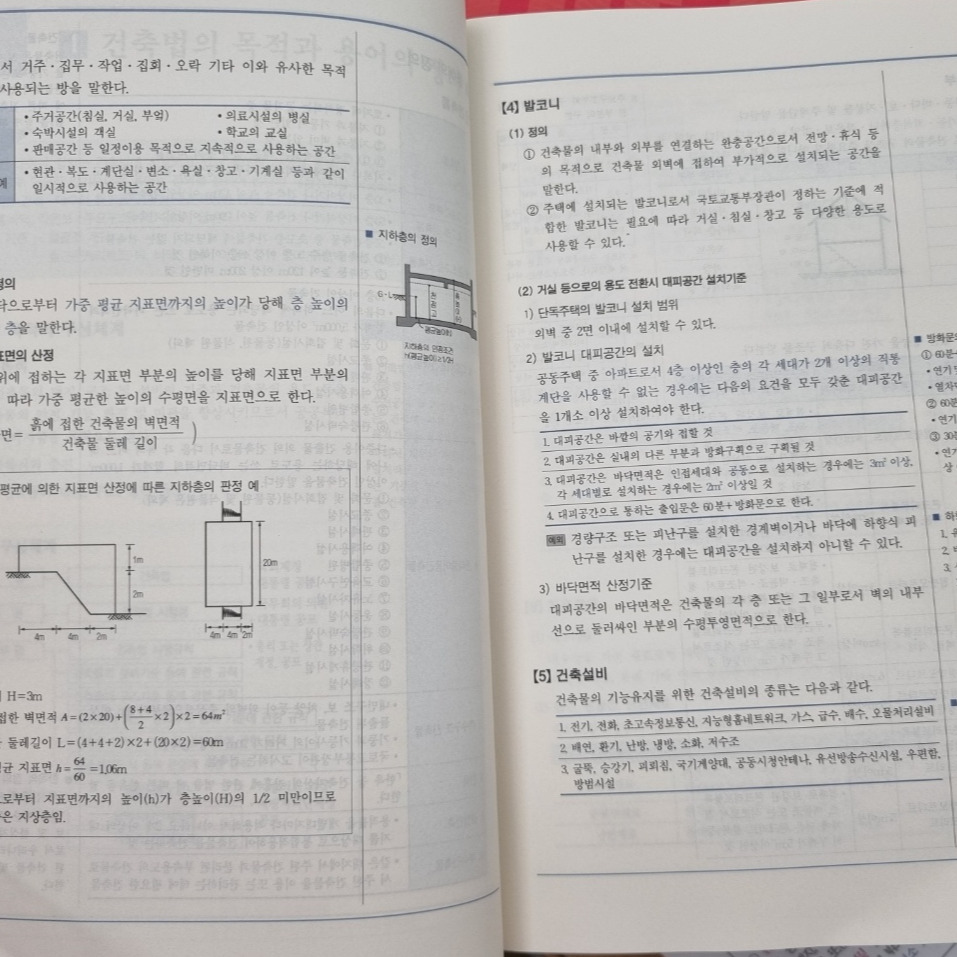 서 거주·집무·작업·집회·오락 기타 이와 유사한 목적
사용되는 방을 말한다.
• 주거공간(침실, 거실, 부엌) • 의료시설의 병실
• 숙박시설의 객실 • 학교의 교실
• 판매공간 등 일정이용 목적으로 지속적으로 사용하는 공간
예
• 현관·복도·계단실·변소·욕실·창고·기계실 등과 같이
일시적으로 사용하는 공간
■ 지하층의 정의
G·L
평균높이(h)
지하층의 인정조건
정의
으로부터 가중 평균 지표면까지의 높이가 당해 층 높이의
층을 말한다.
표면의 산정
위에 접하는 각 지표면 부분의 높이를 당해 지표면 부분의
따라 가중 평균한 높이의 수평면을 지표면으로 한다.
면= 흙에 접한 건축물의 벽면적 / 건축물 둘레 길이 )
평균에 의한 지표면 산정에 따른 지하층의 판정 예
1m
2m
4m 4m 2m
20m
4m 4m 2m
H=3m
접한 벽면적 A=(2×20)+(8+4/2×2)×2=64m²
둘레길이 L=(4+4+2)×2+(20×2)=60m
균 지표면 h=64/60=1.06m
로부터 지표면까지의 높이(h)가 층높이(H)의 1/2 미만이므로
은 지상층임.
[4] 발코니
(1) 정의
① 건축물의 내부와 외부를 연결하는 완충공간으로서 전망·휴식 등
의 목적으로 건축물 외벽에 접하여 부가적으로 설치되는 공간을
말한다.
② 주택에 설치되는 발코니로서 국토교통부장관이 정하는 기준에 적
합한 발코니는 필요에 따라 거실·침실·창고 등 다양한 용도로
사용할 수 있다.
(2) 거실 등으로의 용도 전환시 대피공간 설치기준
1) 단독주택의 발코니 설치 범위
외벽 중 2면 이내에 설치할 수 있다.
2) 발코니 대피공간의 설치
공동주택 중 아파트로서 4층 이상인 층의 각 세대가 2개 이상의 직통
계단을 사용할 수 없는 경우에는 다음의 요건을 모두 갖춘 대피공간
을 1개소 이상 설치하여야 한다.
1. 대피공간은 바깥의 공기와 접할 것
2. 대피공간은 실내의 다른 부분과 방화구획으로 구획될 것
3. 대피공간은 바닥면적은 인접세대와 공동으로 설치하는 경우에는 3m² 이상,
각 세대별로 설치하는 경우에는 2m² 이상일 것
4. 대피공간으로 통하는 출입문은 60분+방화문으로 한다.
예외 경량구조 또는 피난구를 설치한 경계벽이거나 바닥에 하향식 피
난구를 설치한 경우에는 대피공간을 설치하지 아니할 수 있다.
3) 바닥면적 산정기준
대피공간의 바닥면적은 건축물의 각 층 또는 그 일부로서 벽의 내부
선으로 둘러싸인 부분의 수평투영면적으로 한다.
[5] 건축설비
건축물의 기능유지를 위한 건축설비의 종류는 다음과 같다.
1. 전기, 전화, 초고속정보통신, 지능형홈네트워크, 가스, 급수, 배수, 오물처리설비
2. 배연, 환기, 난방, 냉방, 소화, 저수조
3. 굴뚝, 승강기, 피뢰침, 국기게양대, 공동시청안테나, 유선방송수신시설, 우편함,
방범시설
■ 방화문
① 60분
• 연기
• 열차
② 60분
• 연기
③ 30
• 연기
상
1.
2.
3.